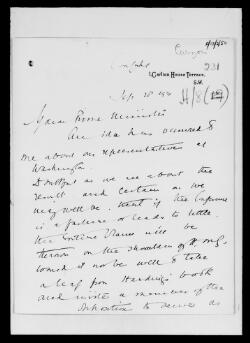 Curzon
Confid.
1 Carlton House Terrace,
S.W.
231
H/8
Sep. 28 1921
My dear Prime Minister
An idea has occurred to
me about our representatives at
Washington.
Doubtful as we are about the
result and certain as we
may well be that if the Conference
is a failure or leads to little
the entire blame will be
thrown on the shoulders of H.M.G.
would it not be well to take
a leaf from Harding's book
and invite a member of the
Opposition to serve as